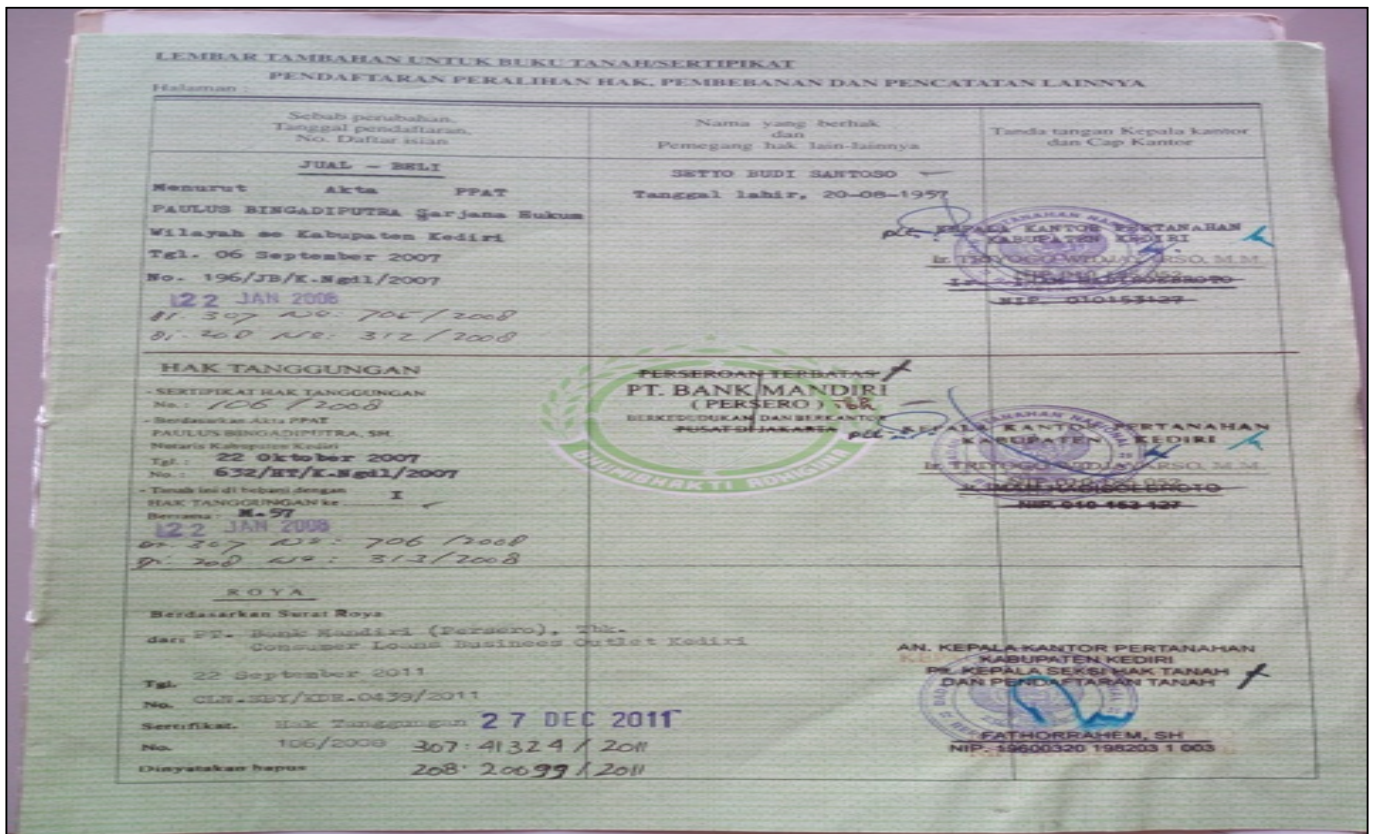 LEMBAR TAMBAHAN UNTUK BUKU TANAH/SERTIPIKAT
PENDAFTARAN PERALIHAN HAK, PEMBEBANAN DAN PENCATATAN LAINNYA
Halaman :
Sebab perubahan,
Tanggal pendaftaran,
No. Daftar isian
Nama yang berhak
dan
Pemegang hak lain-lainnya
Tanda tangan Kepala kantor
dan Cap Kantor
JUAL - BELI
Menurut Akta PPAT
PAULUS BINGADIPUTRA Sarjana Hukum
Wilayah se Kabupaten Kediri
Tgl. 06 September 2007
No. 196/JB/K.Ngdl/2007
22 JAN 2008
di. 307 No: 705/2008
di. 208 No: 312/2008
SETYO BUDI SANTOSO
Tanggal lahir, 20-08-1957
plt. KEPALA KANTOR PERTANAHAN
KABUPATEN KEDIRI
Ir. TRIYOGO WIDJANARSO, M.M.
NIP. 010153127
HAK TANGGUNGAN
- SERTIPIKAT HAK TANGGUNGAN
No. : 106 / 2008
- Berdasarkan Akta PPAT
PAULUS BINGADIPUTRA, SH
Notaris Kabupaten Kediri
Tgl. : 22 Oktober 2007
No. : 632/HT/K.Ngdl/2007
- Tanah ini di bebani dengan
HAK TANGGUNGAN ke I
Bersama : M.57
22 JAN 2008
di. 307 No: 706 /2008
di. 208 No: 313/2008
PERSEROAN TERBATAS
PT. BANK MANDIRI
( PERSERO ) Tbk
BERKEDUDUKAN DAN BERKANTOR
PUSAT DI JAKARTA
plt. KEPALA KANTOR PERTANAHAN
KABUPATEN KEDIRI
Ir. TRIYOGO WIDJANARSO, M.M.
NIP. 010 153 127
BHUMIBHAKTI ADHIGUNA
ROYA
Berdasarkan Surat Roya
dari PT. Bank Mandiri (Persero), Tbk.
Consumer Loans Business Outlet Kediri
Tgl. 22 September 2011
No. CLN.SBY/KDR.0439/2011
Sertifikat. Hak Tanggungan 27 DEC 2011
No. 106/2008 307: 41324 / 2011
Dinyatakan hapus 208: 20699 / 2011
AN. KEPALA KANTOR PERTANAHAN
KABUPATEN KEDIRI
PLT. KEPALA SEKSI HAK TANAH
DAN PENDAFTARAN TANAH
FATHORRAHEM, SH
NIP. 19600320 198203 1 003